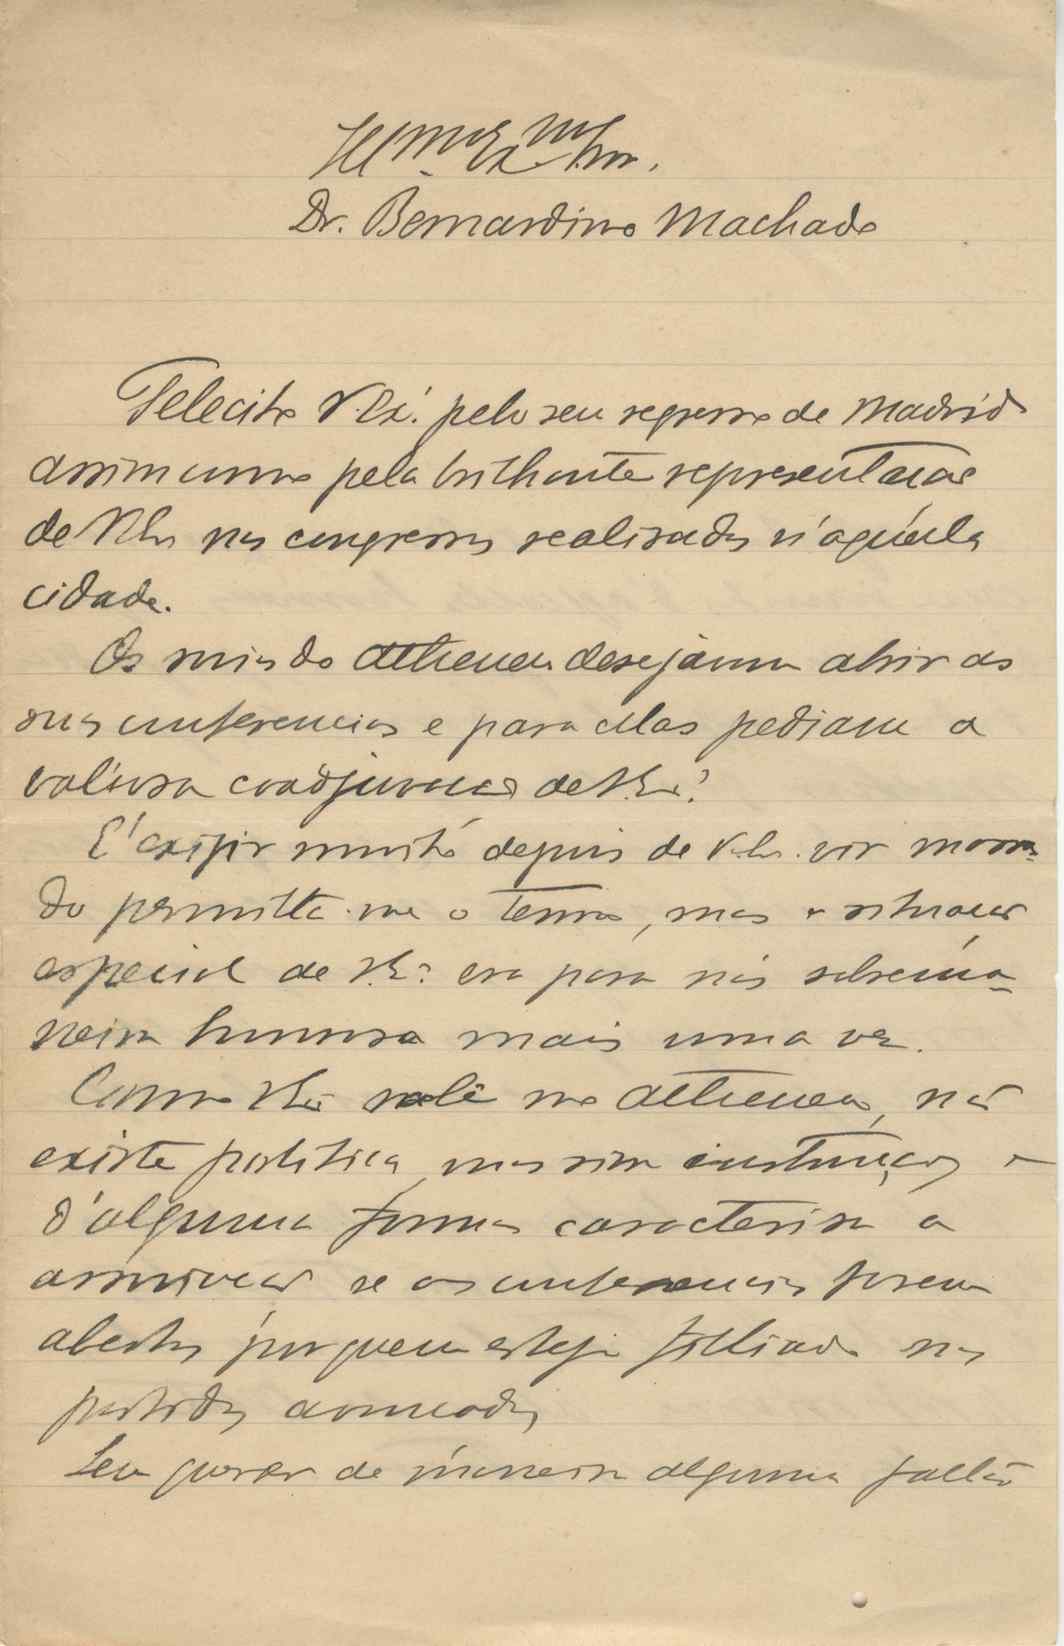 Illmo. Exmo. Snr.
Dr. Bernardino Machado
Felecito V. Exª. pelo seu regresso de Madrid
assim como pela brilhante representacão
de V. Exª nos congressos realisados n'aquéla
cidade.
Os socios do Atheneu desejavam abrir as
suas conferencias e para ellas pediam a
valiosa coadjuvacão de V. Exª.
É exigir muito depois de V. Exª. vir
do permitta-me o termo, mas a situacão
especial de V. Exª. era para nós sobrema-
neira honrosa mais uma vez.
Como V. Exª no Atheneu, não
existe politica, mas sim instrução, e
d'alguma forma caracterisa a
associacão se as conferencias forem
abertas por quem esteja filliado nos
partidos avancados
Sem querer de maneira alguma